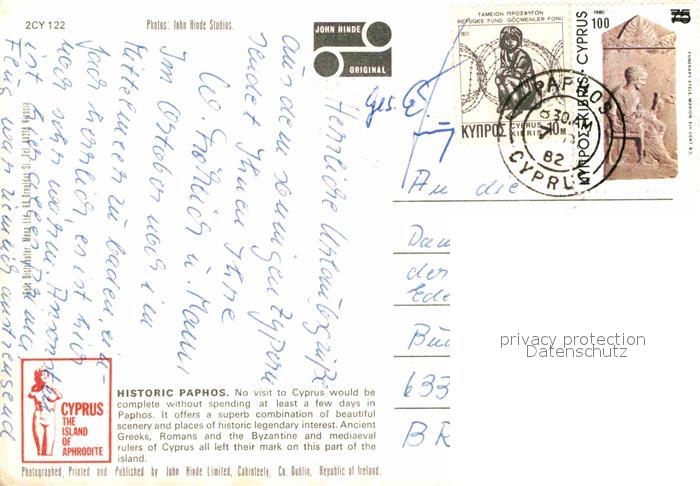 2CY 122
Photos: John Hinde Studios.
JOHN HINDE
ORIGINAL
ΤΑΜΕΙΟΝ ΠΡΟΣΦΥΓΩΝ
REFUGEE FUND GÖÇMENLER FONU
1977
ΚΥΠΡΟΣ CYPRUS KIBRIS 10M
1980
75
100
ΚΥΠΡΟΣ-KIBRIS-CYPRUS
FUNERARY STELE MARION 5TH CENT B.C.
PAPHOS
82
CYPRUS
Herzliche Urlaubsgrüße
aus dem sonnigen Zypern
sendet Ihnen Ihre
u. Mann
noch im
Mittelmeer zu baden, ein-
herrlich, es ist hier
noch sehr warm.
ist hier
war ziemlich anstrengend
Ges.
An die
Dam
der
Ede
633
BR
privacy protection
Datenschutz
CYPRUS
THE
ISLAND
OF
APHRODITE
HISTORIC PAPHOS. No visit to Cyprus would be
complete without spending at least a few days in
Paphos. It offers a superb combination of beautiful
scenery and places of historic legendary interest. Ancient
Greeks, Romans and the Byzantine and mediaeval
rulers of Cyprus all left their mark on this part of the
island.
Photographed, Printed and Published by John Hinde Limited, Cabinteely, Co. Dublin, Republic of Ireland.